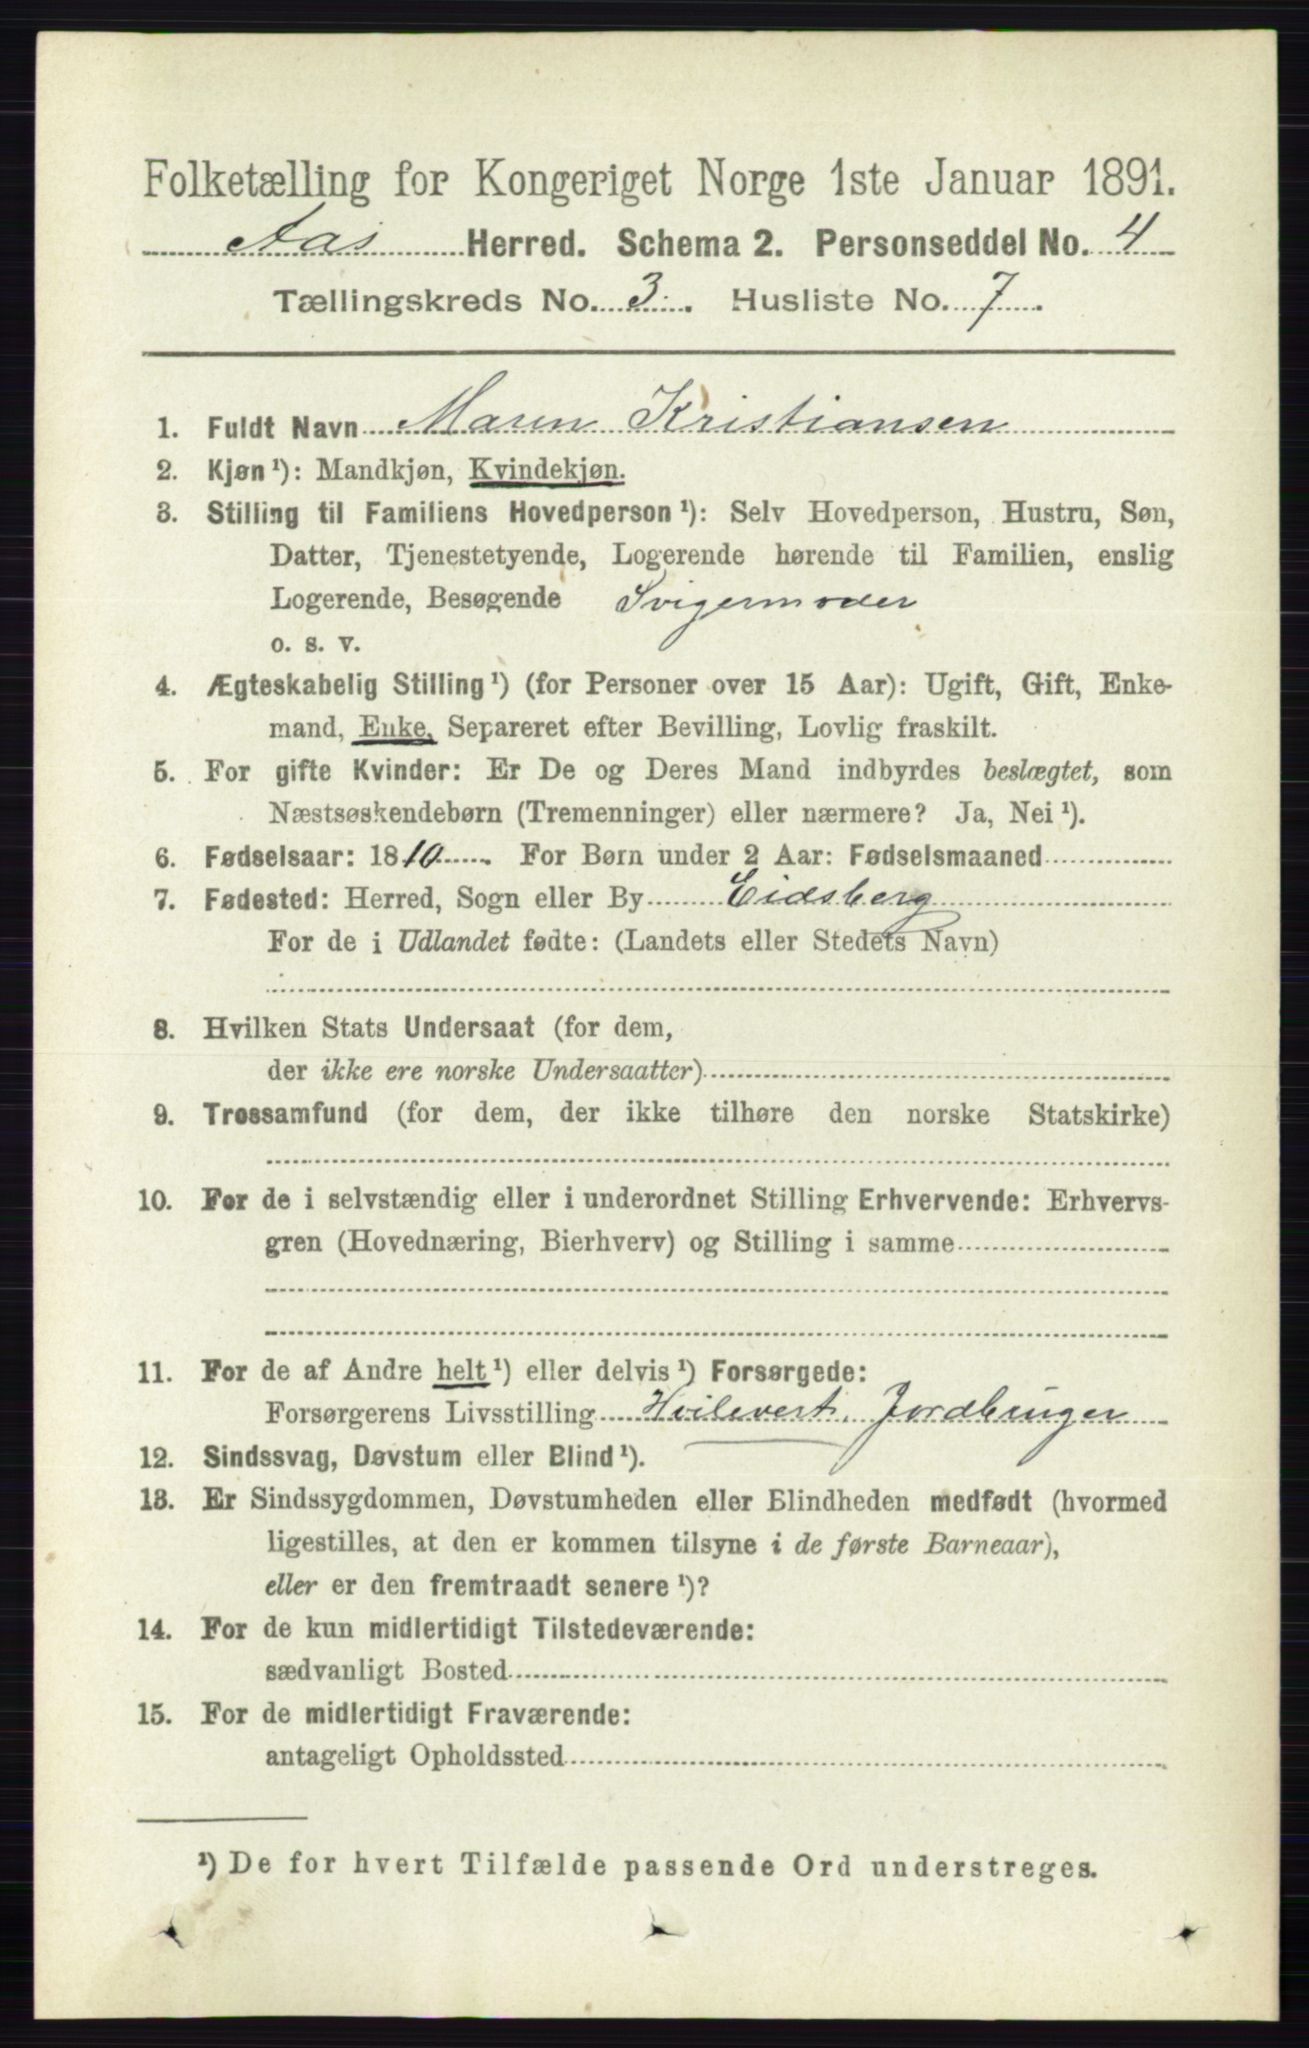 Folketælling for Kongeriget Norge 1ste Januar 1891.
Aas Herred. Schema 2. Personseddel No. 4
Tællingskreds No. 3. Husliste No. 7.
1. Fuldt Navn Maren Kristiansen
2. Kjøn¹): Mandkjøn, Kvindekjøn.
3. Stilling til Familiens Hovedperson¹): Selv Hovedperson, Hustru, Søn,
Datter, Tjenestetyende, Logerende hørende til Familien, enslig
Logerende, Besøgende Svigermoder
o. s. v.
4. Ægteskabelig Stilling¹) (for Personer over 15 Aar): Ugift, Gift, Enke-
mand, Enke, Separeret efter Bevilling, Lovlig fraskilt.
5. For gifte Kvinder: Er De og Deres Mand indbyrdes beslægtet, som
Næstsøskendebørn (Tremenninger) eller nærmere? Ja, Nei¹).
6. Fødselsaar: 1810. For Børn under 2 Aar: Fødselsmaaned
7. Fødested: Herred, Sogn eller By Eidsberg
For de i Udlandet fødte: (Landets eller Stedets Navn)
8. Hvilken Stats Undersaat (for dem,
der ikke ere norske Undersaatter)
9. Trossamfund (for dem, der ikke tilhøre den norske Statskirke)
10. For de i selvstændig eller i underordnet Stilling Erhvervende: Erhvervs-
gren (Hovednæring, Bierhverv) og Stilling i samme
11. For de af Andre helt¹) eller delvis¹) Forsørgede:
Forsørgerens Livsstilling Hvilevert, Jordbruger
12. Sindssvag, Døvstum eller Blind¹).
13. Er Sindssygdommen, Døvstumheden eller Blindheden medfødt (hvormed
ligestilles, at den er kommen tilsyne i de første Barneaar),
eller er den fremtraadt senere¹)?
14. For de kun midlertidigt Tilstedeværende:
sædvanligt Bosted
15. For de midlertidigt Fraværende:
antageligt Opholdssted
¹) De for hvert Tilfælde passende Ord understreges.